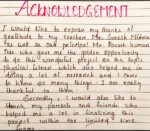 ACKNOWLEDGEMENT
I would like to express my thanks of
gratitude to my teacher Mr.
as well as our principal Mr.
who gave me the golden opportunity
to do this wonderful project on the topic
which also helped me in
doing a lot of research and I came
to know so many things. I am really
thankful to them.
Secondly, I would also like to
thank my parents and friends who
helped me a lot in finalising this
project within the limited time